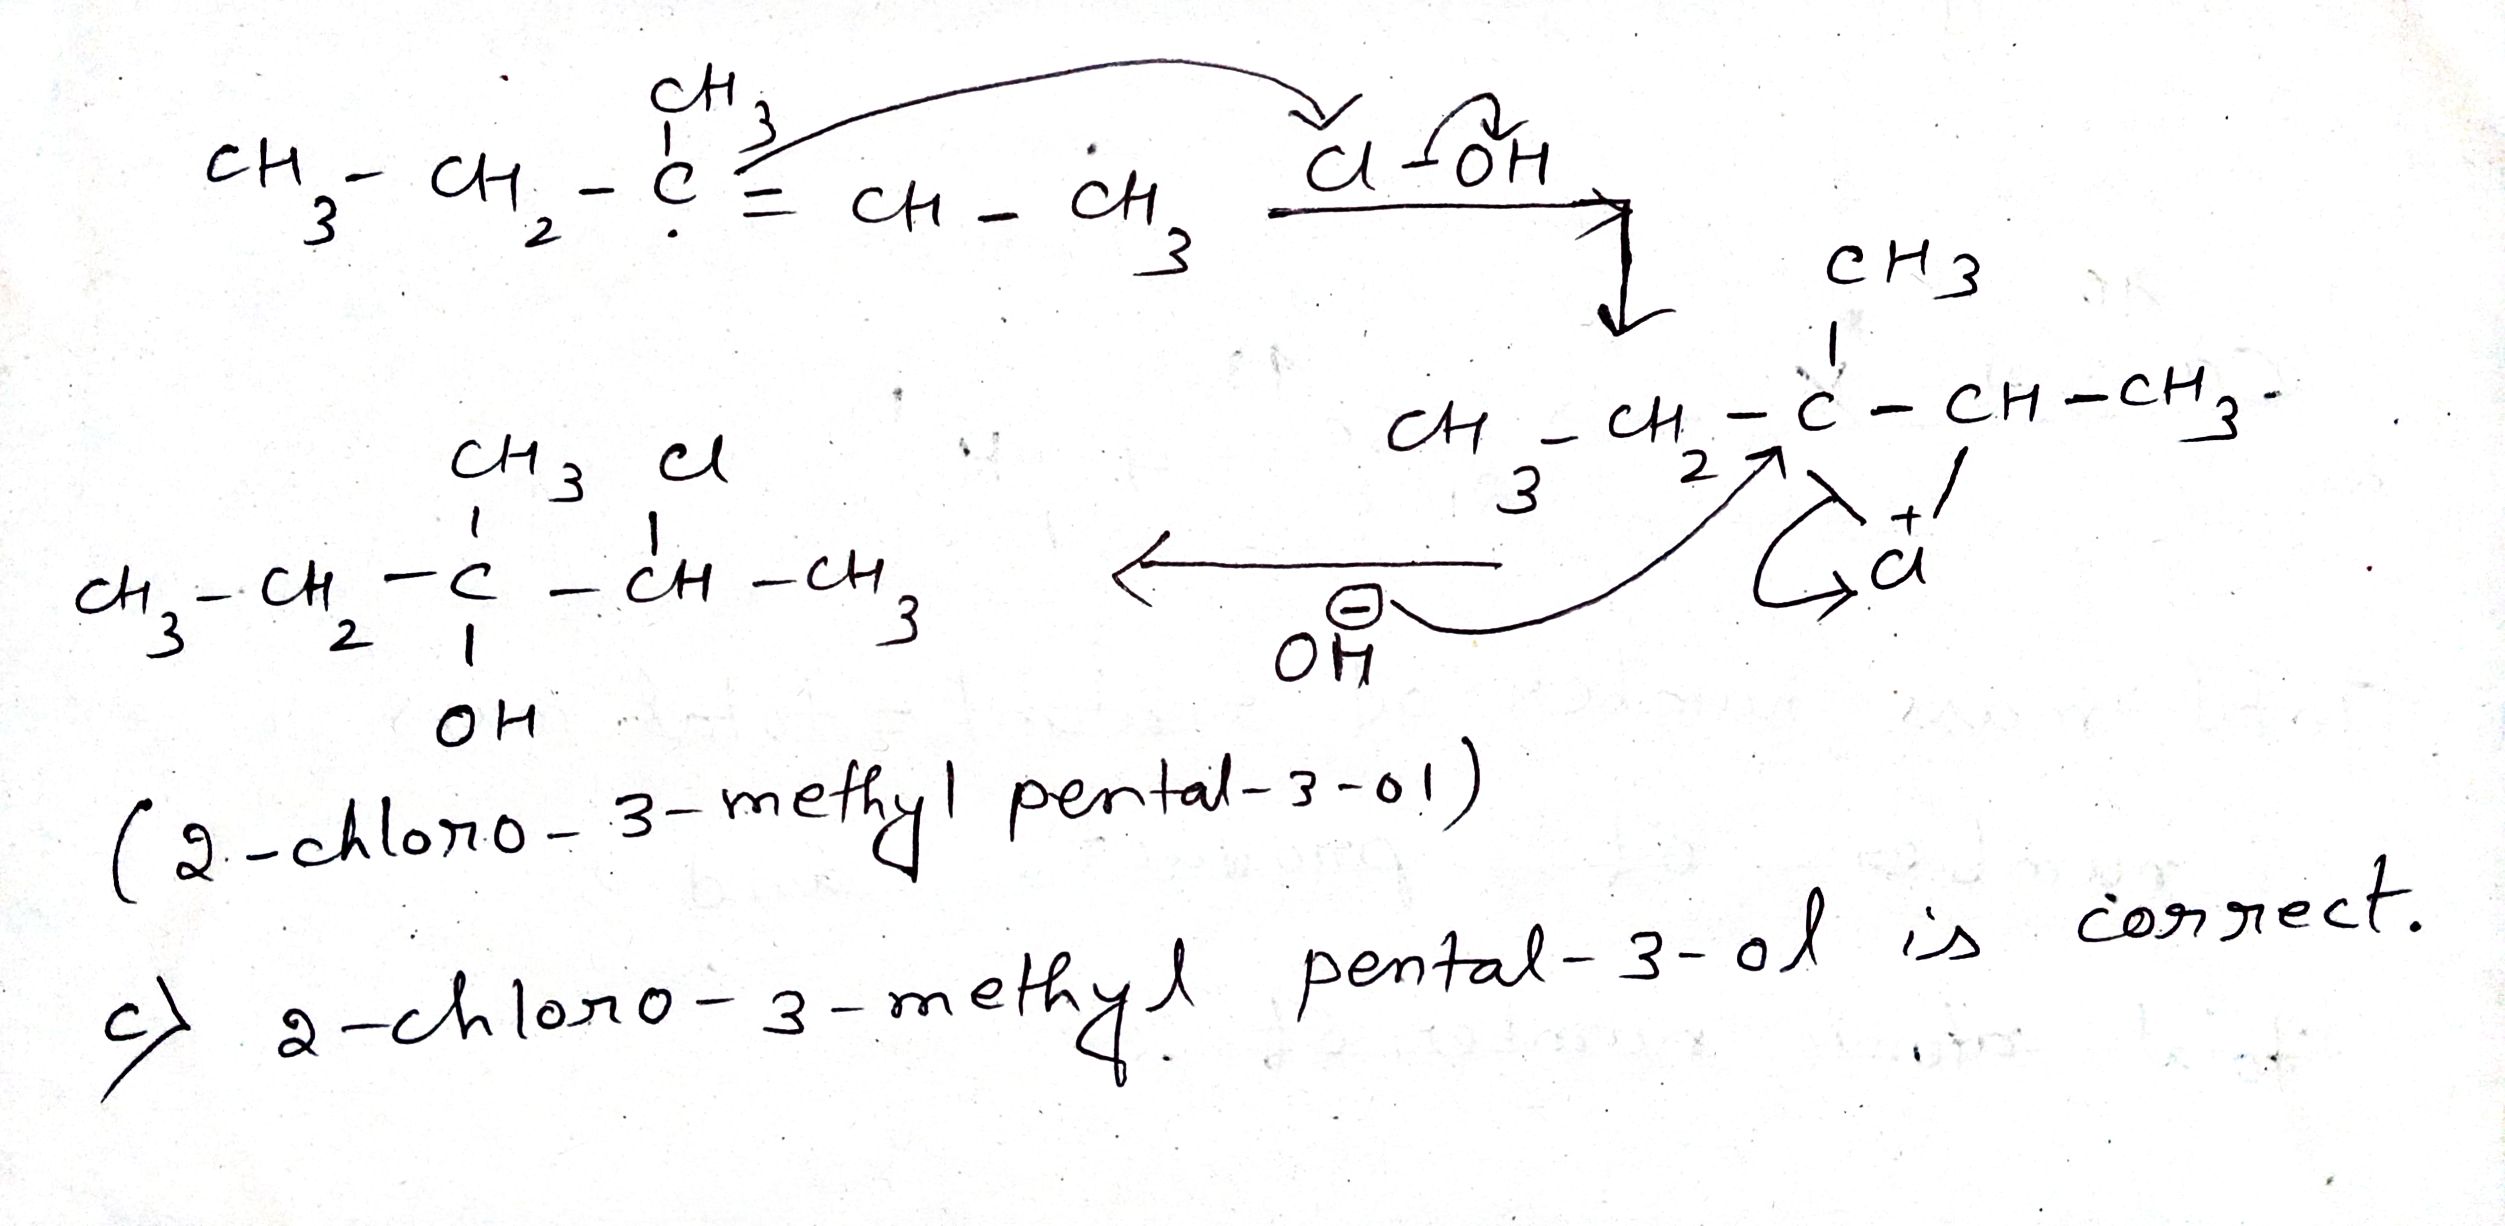 CH3
CH3 - CH2 - C = CH - CH3
Cl - OH
CH3
CH3 - CH2 - C - CH - CH3
+
Cl
CH3 Cl
CH3 - CH2 - C - CH - CH3
OH
⊖
OH
(2-chloro-3-methyl pental-3-ol)
c) 2-chloro-3-methyl pental-3-ol is correct.